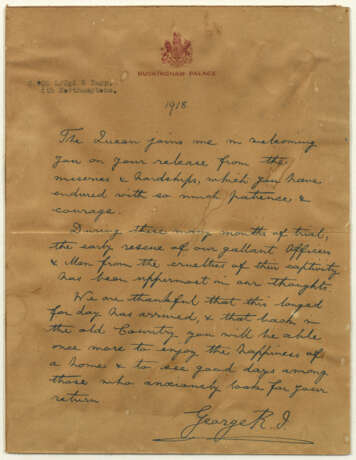 BUCKINGHAM PALACE
L/Cpl E Rapp.
4th Northamptons.
1918
The Queen joins me in welcoming
you on your release from the
miseries & hardships, which you have
endured with so much patience &
courage.
During these many months of trial,
the early rescue of our gallant Officers
& Men from the cruelties of their captivity
has been uppermost in our thoughts.
We are thankful that this longed
for day has arrived, & that back in
the old Country you will be able
once more to enjoy the happiness of
a home & to see good days among
those who anxiously look for your
return.
George R.I.